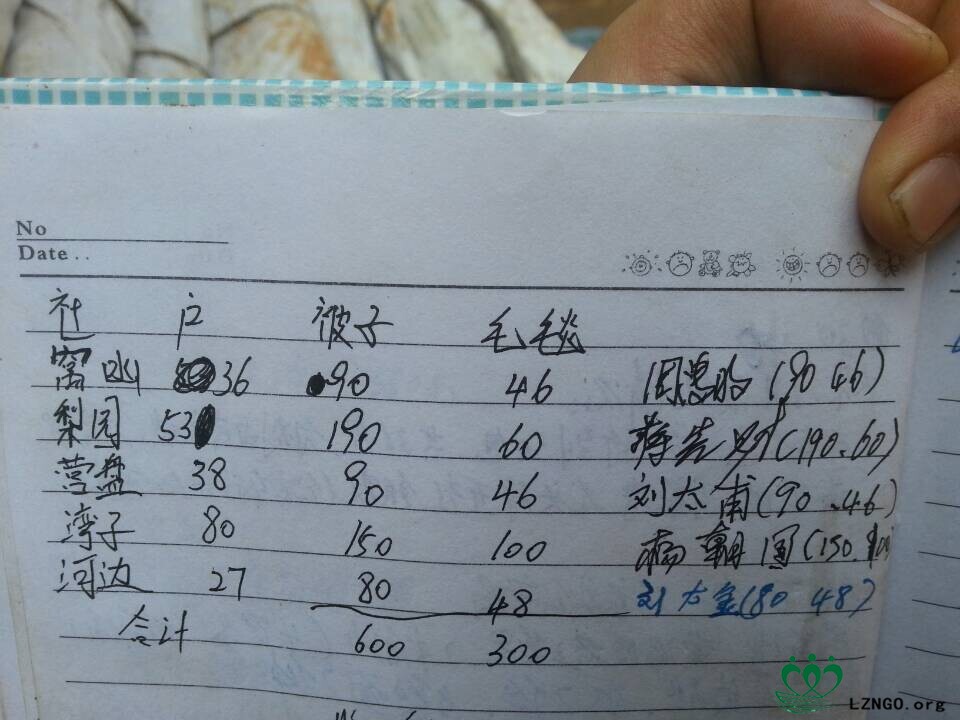 No
Date..
社 户 被子 毛毯
窝凼 36 90 46 (90 46)
梨园 53 190 60 蒋先财(190.60)
营盘 38 90 46 刘太甫(90.46)
湾子 80 150 100 杨朝国(150.100)
河边 27 80 48 刘太金(80 48)
合计 600 300
LZNGO.org